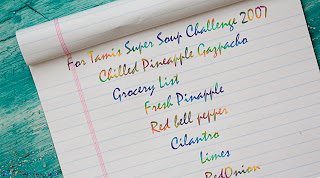 For Tamis Super Soup Challenge 2007
Chilled Pineapple Gazpacho
Grocery List
Fresh Pinapple
Red bell pepper
Cilantro
Limes
RedOnion